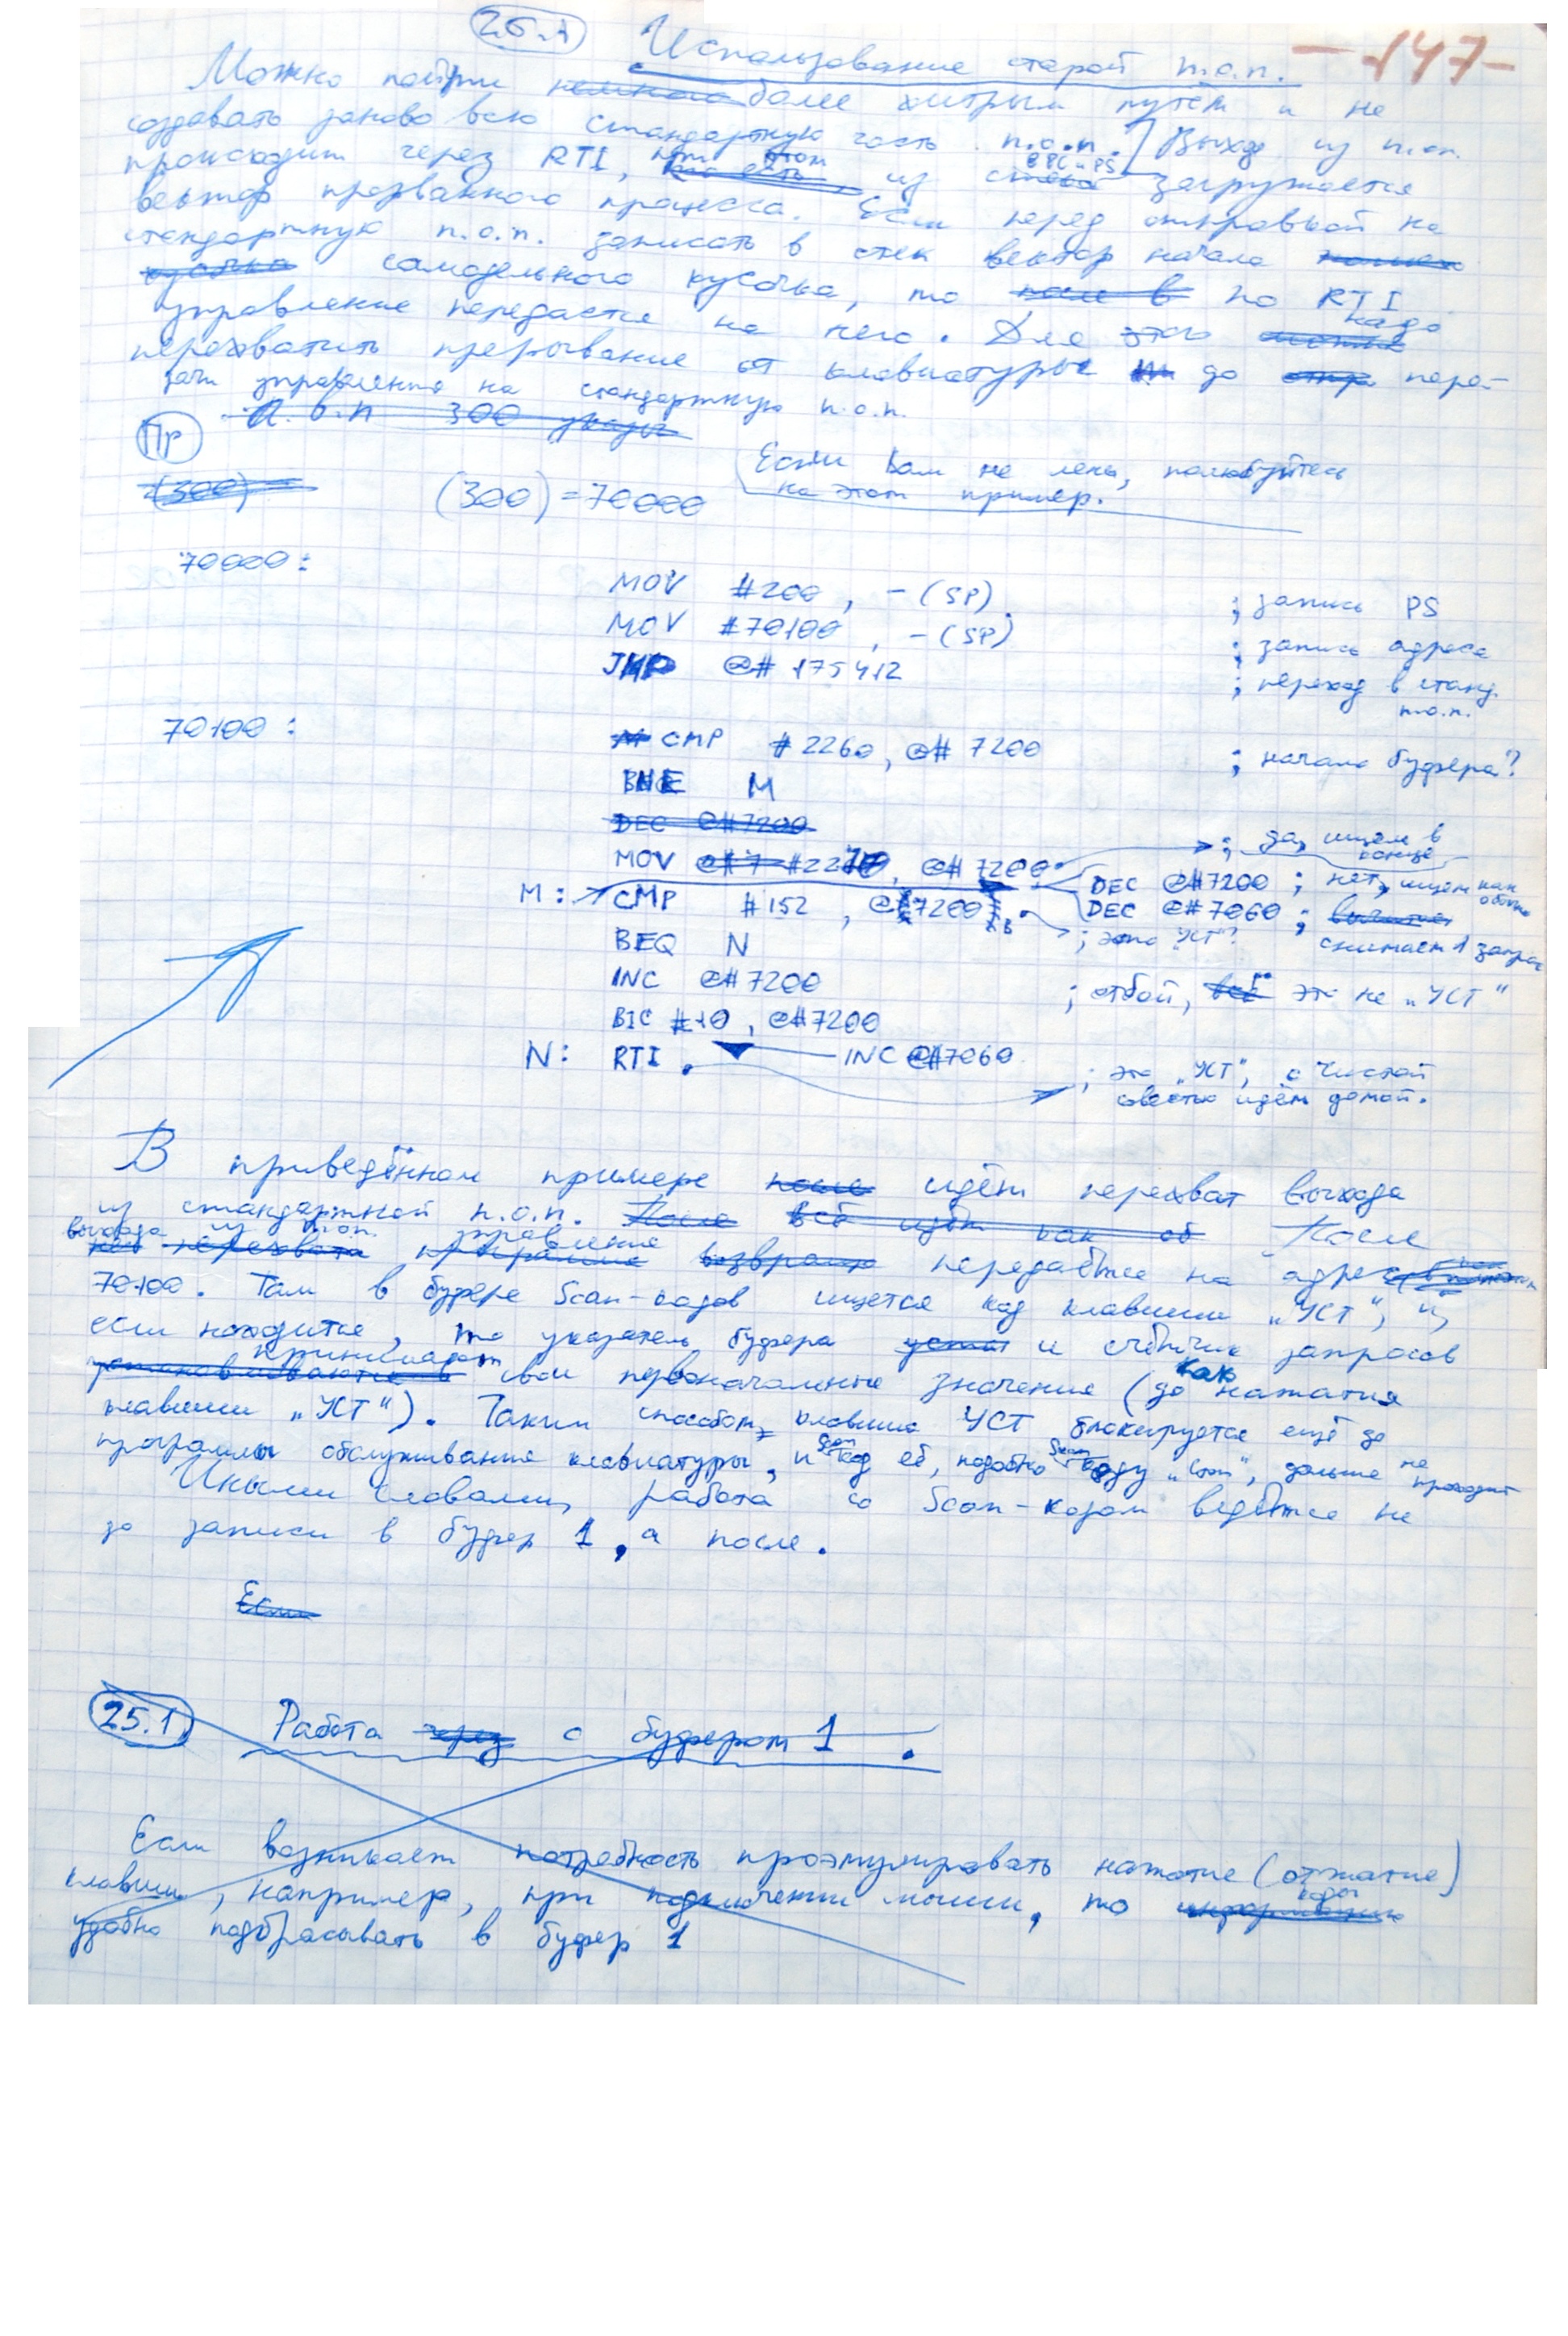 25.1 Использование старой п.о.п. -147-
Можно пойти немного более хитрым путём и не
создавать заново всю стандартную часть п.о.п. Выход из п.о.п.
происходит через RTI, при этом то есть из стека в PC и PS загружается
вектор прерванного процесса. Если перед отправкой на
стандартную п.о.п. записать в стек вектор начала
кусочка самодельного кусочка, то после в по RTI
управление передастся на него. Для этого можно надо
перехватить прерывание от клавиатуры до отпр пере-
дачи управления на стандартную п.о.п.
П.о.п 300 указы
Пр
(300) (300)=70000 Если Вам не лень, полюбуйтесь
на этот пример.
70000:
MOV #200, -(SP) ; запись PS
MOV #70100, -(SP) ; запись адреса
JMP @#175412 ; переход в станд.
п.о.п.
70100: CMP #2260, @#7200 ; начало буфера?
BNE M
DEC @#7200
MOV #2270, @#7200 ; да, ищем в
конце
DEC @#7200 ; нет, ищем как обычно
M: CMP #152, @7200 DEC @#7060 ; снимает 1 запрос
BEQ N ; это УСТ?
INC @#7200 ; отбой, всё это не „УСТ“
BIC #10, @#7200
N: RTI. INC @#7060 ; это „УСТ“, с чистой
совестью идём домой.
В приведённом примере после идёт перехват выхода
из стандартной п.о.п. После всё идёт как об После
выхода из п.о.п. перехвата управление возвращ передаётся на адрес
70100. Там в буфере Scan-кодов ищется код клавиши „УСТ“, и,
если находится, то указатель буфера устан и счётчик запросов
устанавливаются в принимают свои первоначальные значения (как до нажатия
клавиши „УСТ“). Таким способом клавиша УСТ блокируется ещё до
программы обслуживания клавиатуры, и Scan код её, подобно Scan коду „Стоп“, дальше не проходит
Иными словами, работа со Scan-кодом ведётся не
до записи в буфер 1, а после.
Если
25.1 Работа через с буфером 1.
Если возникает потребность проэмулировать нажатие (отжатие)
клавиш, например, при подключении мыши, то информацию коды
удобно подбрасывать в буфер 1